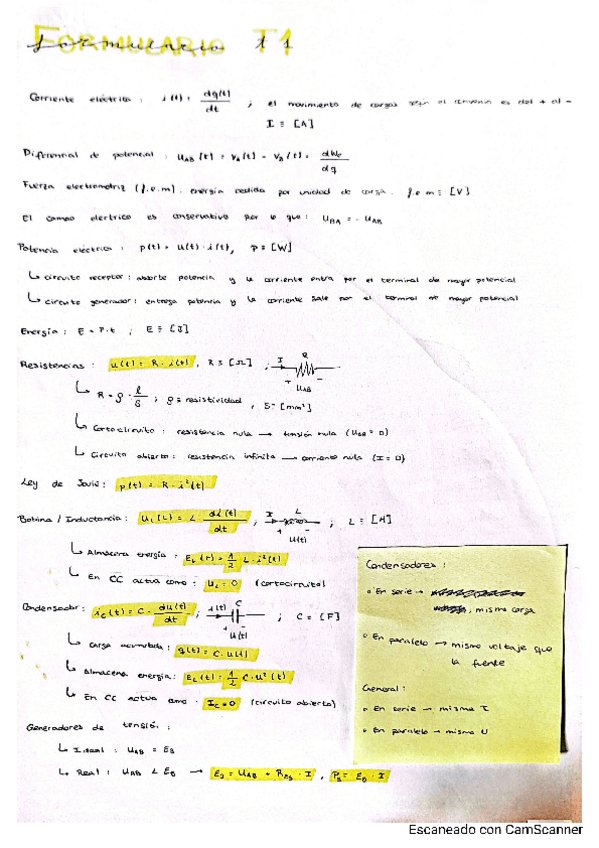 FORMULARIO T1
Corriente eléctrica : i(t) = dq(t)/dt ; el movimiento de cargas es del + al -
I ≡ [A]
Diferencial de potencial : u_AB (t) = V_A(t) - V_B(t) = dWe/dq
Fuerza electromotriz (f.e.m) : energía cedida por unidad de carga. f.e.m ≡ [V]
El campo eléctrico es conservativo por lo que : u_BA = - u_AB
Potencia eléctrica : p(t) = u(t) · i(t), p ≡ [W]
↳ circuito receptor : absorbe potencia y la corriente entra por el terminal de mayor potencial
↳ circuito generador : entrega potencia y la corriente sale por el terminal de mayor potencial
Energía : E = P·t ; E ≡ [J]
Resistencias : u(t) = R · i(t), R ≡ [Ω] ; I R + - U_AB
↳ R = ρ · l/S ; ρ ≡ resistividad, S ≡ [mm²]
↳ Cortocircuito : resistencia nula → tensión nula (U_AB = 0)
↳ Circuito abierto : resistencia infinita → corriente nula (I = 0)
Ley de Joule : p(t) = R · i²(t)
Bobina / Inductancia : U_L(t) = L · di(t)/dt ; I L + - U(t) ; L ≡ [H]
↳ Almacena energía : E_L(t) = 1/2 L · i²(t)
↳ En CC actua como : U_L = 0 (cortocircuito)
Condensador : i_C(t) = C · du(t)/dt ; i(t) C + - U(t) ; C ≡ [F]
↳ Carga acumulada : q(t) = C · u(t)
↳ Almacena energía : E_C(t) = 1/2 C · u²(t)
↳ En CC actua como : I_C = 0 (circuito abierto)
Generadores de tensión :
↳ Ideal : U_AB = E_g
↳ Real : U_AB < E_g → E_g = U_AB + R_Ag · I, P_g = E_g · I
Condensadores :
• En serie →
misma carga
• En paralelo → mismo voltaje que
la fuente
General :
• En serie → misma I
• En paralelo → mismo U
Escaneado con CamScanner